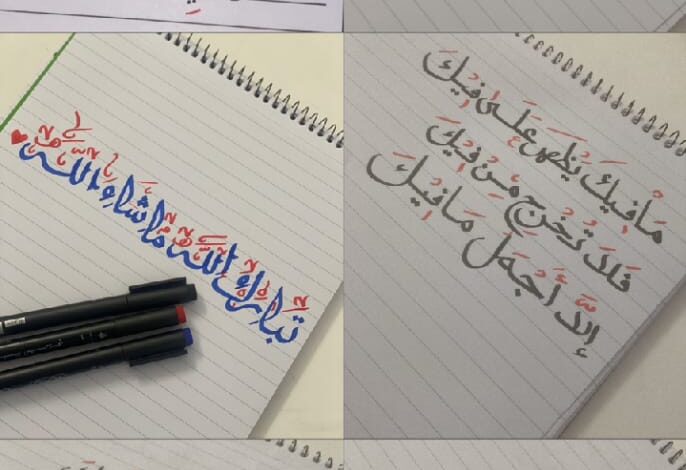 تبارك الله ما شاء الله
مَا فِيكَ يَظْهَرُ عَلَى فِيكَ
فَلَا تُخْرِج مِنْ فِيكَ
إلَّا أَجْمَلَ مَا فِيكَ